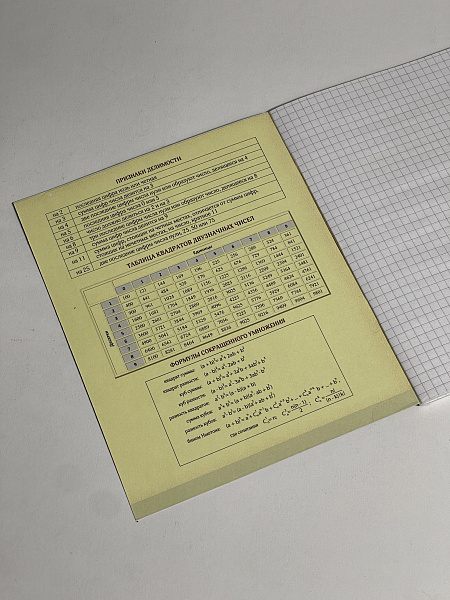 ПРИЗНАКИ ДЕЛИМОСТИ
на 2 последняя цифра ноль или четная
на 3 сумма цифр числа делится на 3
на 4 две последние цифры числа нули или образуют число, делящееся на 4
на 5 последняя цифра числа 0 или 5
на 6 число должно делиться на 2 и на 3
на 8 три последние цифры числа нули или образуют число, делящееся на 8
на 9 сумма цифр числа делится на 9
на 11 сумма цифр, стоящих на четных местах, отличается от суммы цифр,
стоящих на нечетных местах, на число, кратное 11
на 25 две последние цифры числа нули, 25, 50 или 75
ТАБЛИЦА КВАДРАТОВ ДВУЗНАЧНЫХ ЧИСЕЛ
Единицы
0 1 2 3 4 5 6 7 8 9
Десятки
1 100 121 144 169 196 225 256 289 324 361
2 400 441 484 529 576 625 676 729 784 841
3 900 961 1024 1089 1156 1225 1296 1369 1444 1521
4 1600 1681 1764 1849 1936 2025 2116 2209 2304 2401
5 2500 2601 2704 2809 2916 3025 3136 3249 3364 3481
6 3600 3721 3844 3969 4096 4225 4356 4489 4624 4761
7 4900 5041 5184 5329 5476 5625 5776 5929 6084 6241
8 6400 6561 6724 6889 7056 7225 7396 7569 7744 7921
9 8100 8281 8464 8649 8836 9025 9216 9409 9604 9801
ФОРМУЛЫ СОКРАЩЕННОГО УМНОЖЕНИЯ
квадрат суммы: (a + b)² = a² + 2ab + b²
квадрат разности: (a - b)² = a² - 2ab + b²
куб суммы: (a + b)³ = a³ + 3a²b + 3ab² + b³
куб разности: (a - b)³ = a³ - 3a²b + 3ab² - b³
разность квадратов: a² - b² = (a - b)(a + b)
сумма кубов: a³ + b³ = (a + b)(a² - ab + b²)
разность кубов: a³ - b³ = (a - b)(a² + ab + b²)
бином Ньютона:
где сочетания